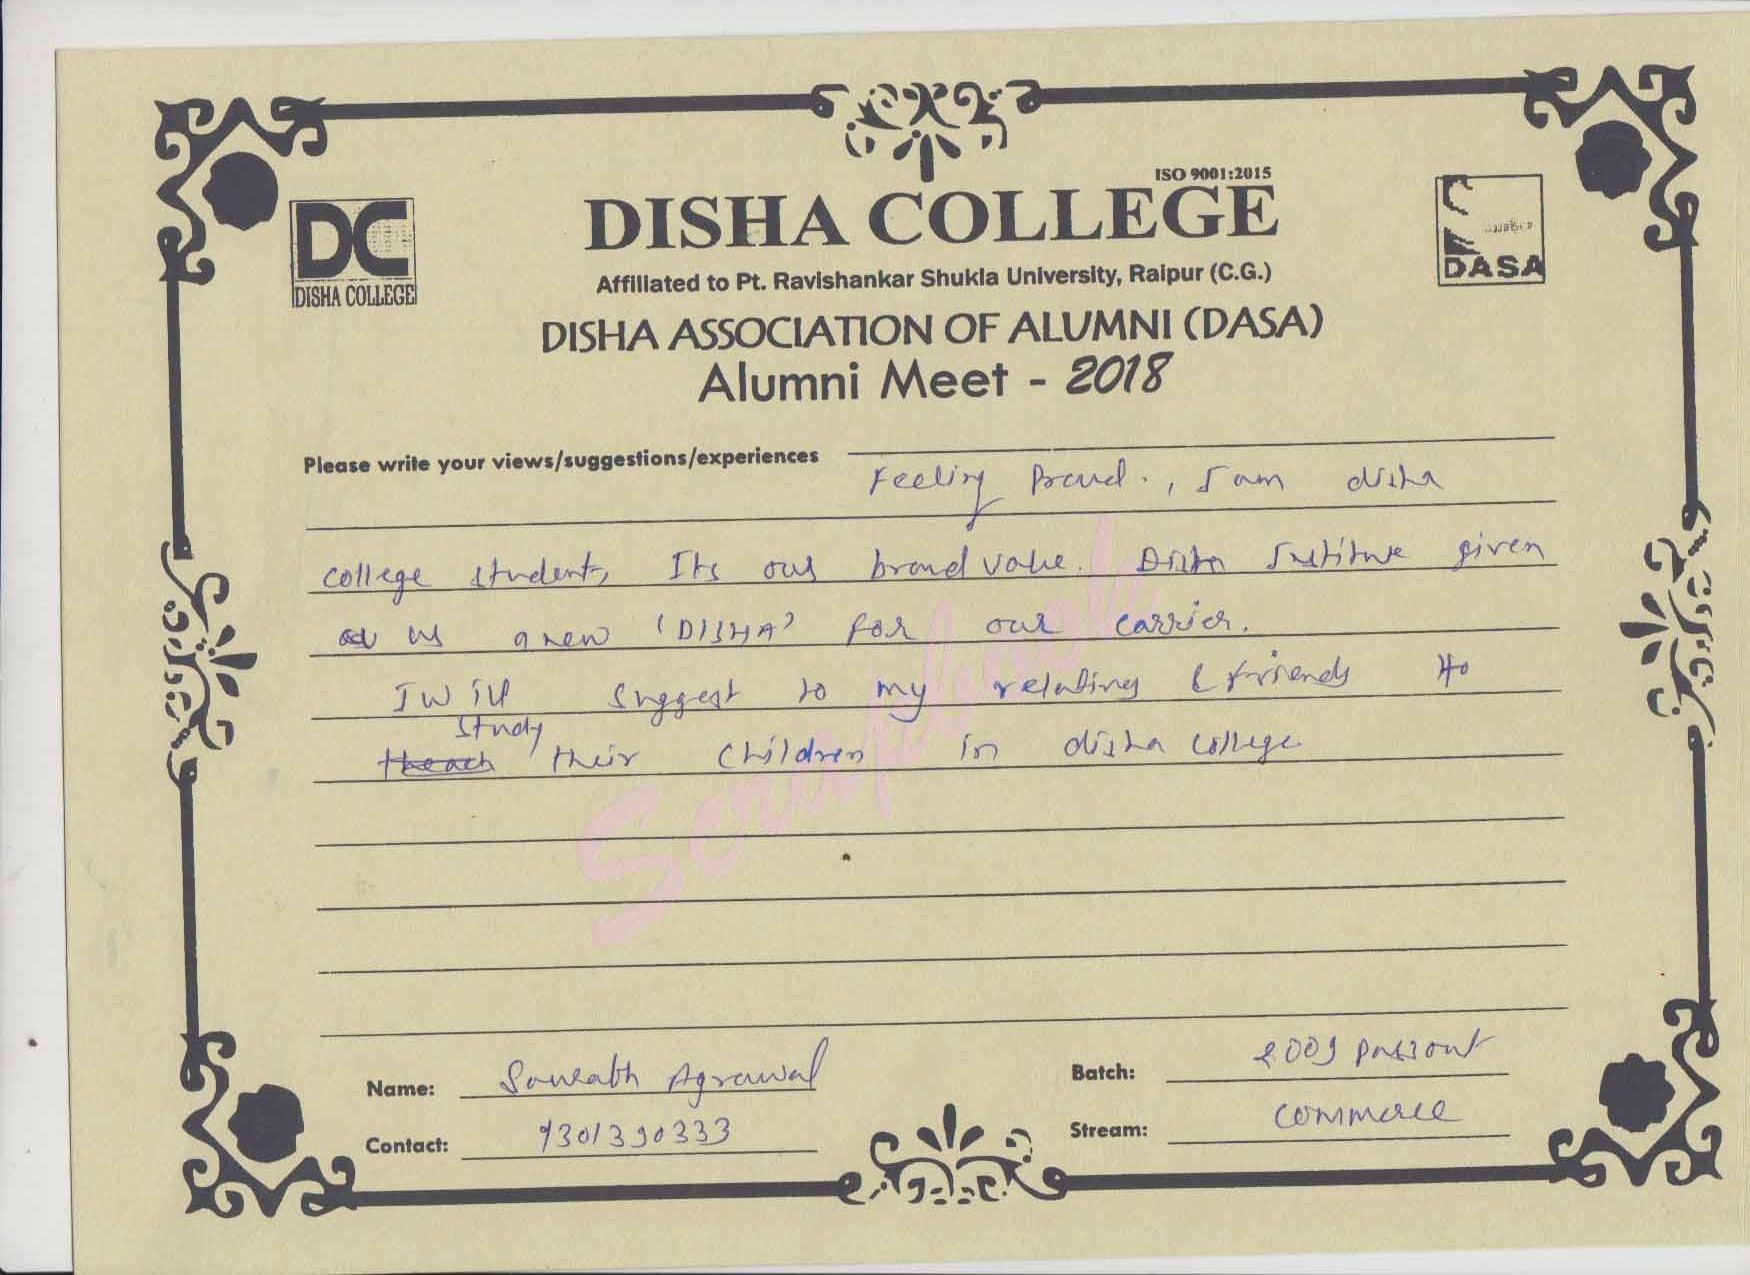 ISO 9001:2015
DC
DISHA COLLEGE
DISHA COLLEGE
DASA
Affiliated to Pt. Ravishankar Shukla University, Raipur (C.G.)
DISHA ASSOCIATION OF ALUMNI (DASA)
Alumni Meet - 2018
Please write your views/suggestions/experiences
Feeling Proud., I am disha
college student, Its our brand value. Disha Institute given
us a new 'DISHA' for our carrier.
I will suggest to my relatives & friends to
study
their children in disha college
Scrapbook
Name: Sourabh Agrawal
Batch: 2009 passout
Contact: 9301390333
Stream: commerce